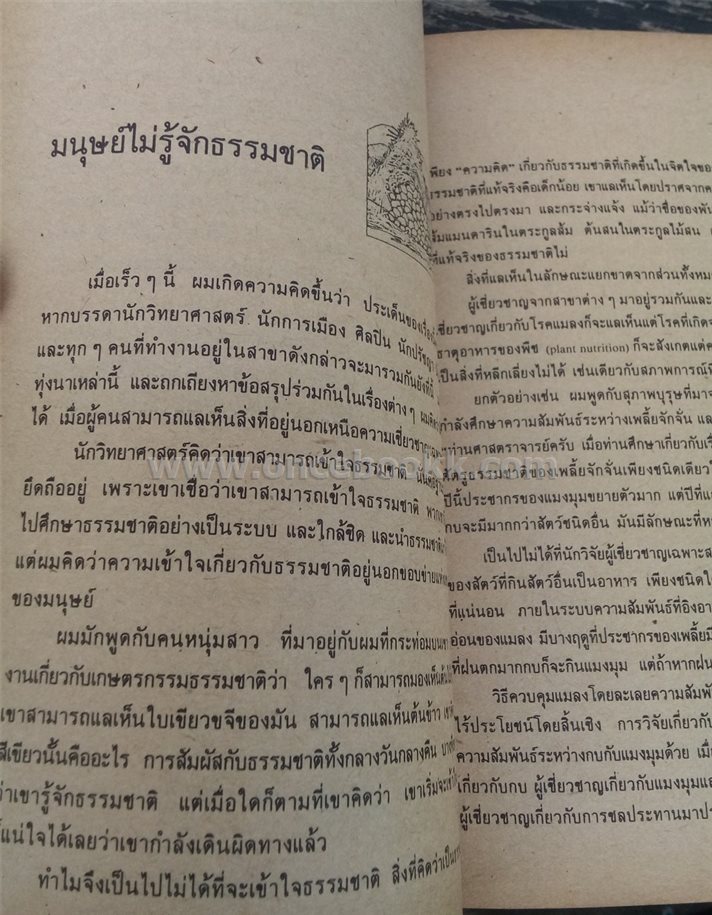 มนุษย์ไม่รู้จักธรรมชาติ
เมื่อเร็ว ๆ นี้ ผมเกิดความคิดขึ้นว่า ประเด็นของเรื่อง
หากบรรดานักวิทยาศาสตร์ นักการเมือง ศิลปิน นักปรัชญา
และทุก ๆ คนที่ทำงานอยู่ในสาขาดังกล่าวจะมารวมกันยังที่นี่
ทุ่งนาเหล่านี้ และถกเถียงหาข้อสรุปร่วมกันในเรื่องต่างๆ ผมคิดว่า
ได้ เมื่อผู้คนสามารถแลเห็นสิ่งที่อยู่นอกเหนือความเชี่ยวชาญ
นักวิทยาศาสตร์คิดว่าเขาสามารถเข้าใจธรรมชาติ
ยึดถืออยู่ เพราะเขาเชื่อว่าเขาสามารถเข้าใจธรรมชาติ
ไปศึกษาธรรมชาติอย่างเป็นระบบ และใกล้ชิด และนำธรรมชาติ
แต่ผมคิดว่าความเข้าใจเกี่ยวกับธรรมชาติอยู่นอกขอบข่าย
ของมนุษย์
ผมมักพูดกับคนหนุ่มสาว ที่มาอยู่กับผมที่กระท่อมบน
งานเกี่ยวกับเกษตรกรรมธรรมชาติว่า ใคร ๆ ก็สามารถมองเห็น
เขาสามารถแลเห็นใบเขียวขจีของมัน สามารถแลเห็นต้นข้าว
สีเขียวนั้นคืออะไร การสัมผัสกับธรรมชาติทั้งกลางวันกลางคืน
ว่าเขารู้จักธรรมชาติ แต่เมื่อใดก็ตามที่เขาคิดว่า เขาเริ่มจะ
แน่ใจได้เลยว่าเขากำลังเดินผิดทางแล้ว
ทำไมจึงเป็นไปไม่ได้ที่จะเข้าใจธรรมชาติ สิ่งที่คิดว่าเป็น
www.
เพียง “ความคิด” เกี่ยวกับธรรมชาติที่เกิดขึ้นในจิตใจของ
ธรรมชาติที่แท้จริงคือเด็กน้อย เขาแลเห็นโดยปราศจาก
อย่างตรงไปตรงมา และกระจ่างแจ้ง แม้ว่าชื่อของ
ส้มแมนดารินในตระกูลส้ม ต้นสนในตระกูลไม้สน
ที่แท้จริงของธรรมชาติไม่
สิ่งที่แลเห็นในลักษณะแยกขาดจากส่วนทั้งหมด
ผู้เชี่ยวชาญจากสาขาต่าง ๆ มาอยู่รวมกันและ
เชี่ยวชาญเกี่ยวกับโรคแมลงก็จะแลเห็นแต่โรคที่เกิด
ธาตุอาหารของพืช (plant nutrition) ก็จะสังเกตแต่
เป็นสิ่งที่หลีกเลี่ยงไม่ได้ เช่นเดียวกับสภาพการณ์
ยกตัวอย่างเช่น ผมพูดกับสุภาพบุรุษที่มา
กำลังศึกษาความสัมพันธ์ระหว่างเพลี้ยจักจั่น และ
ท่านศาสตราจารย์ครับ เมื่อท่านศึกษาเกี่ยวกับ
ศัตรูธรรมชาติของเพลี้ยจักจั่นเพียงชนิดเดียว
ปีนี้ประชากรของแมงมุมขยายตัวมาก แต่ปีที่
กบจะมีมากกว่าสัตว์ชนิดอื่น มันมีลักษณะที่
เป็นไปไม่ได้ที่นักวิจัยผู้เชี่ยวชาญเฉพาะ
ของสัตว์ที่กินสัตว์อื่นเป็นอาหาร เพียงชนิดใด
ที่แน่นอน ภายในระบบความสัมพันธ์ที่อิง
อ่อนของแมลง มีบางฤดูที่ประชากรของเพลี้ย
ที่ฝนตกมากกบก็จะกินแมงมุม แต่ถ้าหากฝน
วิธีควบคุมแมลงโดยละเลยความสัมพันธ์
ไร้ประโยชน์โดยสิ้นเชิง การวิจัยเกี่ยวกับ
ความสัมพันธ์ระหว่างกบกับแมงมุมด้วย
เกี่ยวกับกบ ผู้เชี่ยวชาญเกี่ยวกับแมงมุม
ผู้เชี่ยวชาญเกี่ยวกับการชลประทานมา